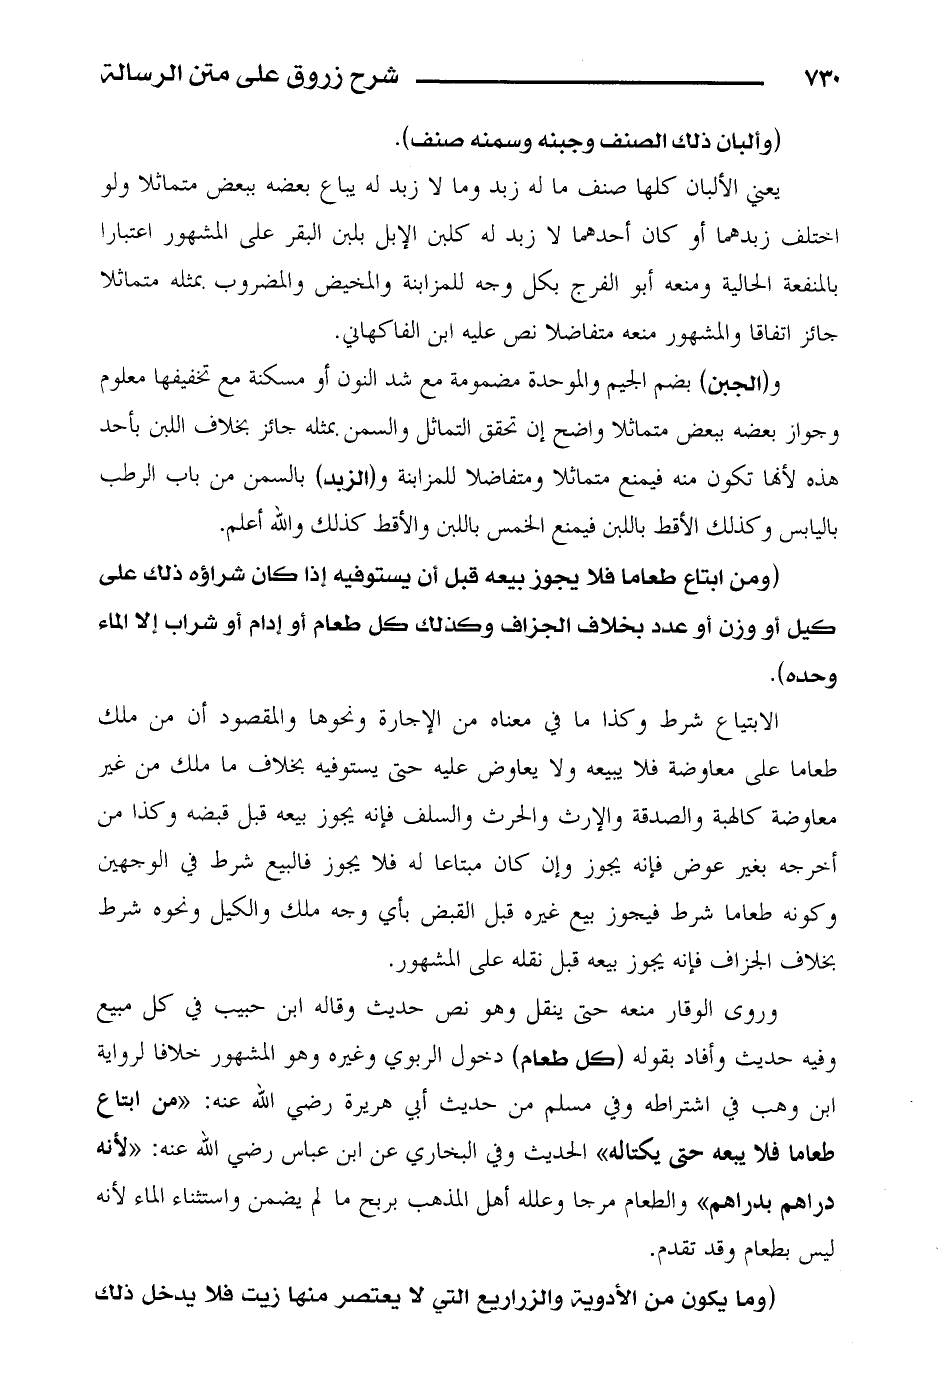 ٧٣٠ شرح زروق على متن الرسالة
(وألبان ذلك الصنف وجبنه وسمنه صنف).
يعني الألبان كلها صنف ما له زبد وما لا زبد له يباع بعضه ببعض متماثلا ولو
اختلف زبدهما أو كان أحدهما لا زبد له كلبن الإبل بلبن البقر على المشهور اعتبارا
بالمنفعة الحالية ومنعه أبو الفرج بكل وجه للمزابنة والمخيض والمضروب بمثله متماثلا
جائز اتفاقا والمشهور منعه متفاضلا نص عليه ابن الفاكهاني.
و(الجبن) بضم الجيم والموحدة مضمومة مع شد النون أو مسكنة مع تخفيفها معلوم
وجواز بعضه ببعض متماثلا واضح إن تحقق التماثل والسمن بمثله جائز بخلاف اللبن بأحد
هذه لأنها تكون منه فيمنع متماثلا ومتفاضلا للمزابنة و(الزبد) بالسمن من باب الرطب
باليابس وكذلك الأقط باللبن فيمنع الخمس باللبن والأقط كذلك والله أعلم.
(ومن ابتاع طعاما فلا يجوز بيعه قبل أن يستوفيه إذا كان شراؤه ذلك على
كيل أو وزن أو عدد بخلاف الجزاف وكذلك كل طعام أو إدام أو شراب إلا الماء
وحده).
الابتياع شرط وكذا ما في معناه من الإجارة ونحوها والمقصود أن من ملك
طعاما على معاوضة فلا يبيعه ولا يعاوض عليه حتى يستوفيه بخلاف ما ملك من غير
معاوضة كالهبة والصدقة والإرث والحرث والسلف فإنه يجوز بيعه قبل قبضه وكذا من
أخرجه بغير عوض فإنه يجوز وإن كان مبتاعا له فلا يجوز فالبيع شرط في الوجهين
وكونه طعاما شرط فيجوز بيع غيره قبل القبض بأي وجه ملك والكيل ونحوه شرط
بخلاف الجزاف فإنه يجوز بيعه قبل نقله على المشهور.
وروى الوقار منعه حتى ينقل وهو نص حديث وقاله ابن حبيب في كل مبيع
وفيه حديث وأفاد بقوله (كل طعام) دخول الربوي وغيره وهو المشهور خلافا لرواية
ابن وهب في اشتراطه وفي مسلم من حديث أبي هريرة رضي الله عنه: «من ابتاع
طعاما فلا يبعه حتى يكتاله» الحديث وفي البخاري عن ابن عباس رضي الله عنه: «لأنه
دراهم بدراهم» والطعام مرجا وعلله أهل المذهب بربح ما لم يضمن واستثناء الماء لأنه
ليس بطعام وقد تقدم.
(وما يكون من الأدوية والزراريع التي لا يعتصر منها زيت فلا يدخل ذلك